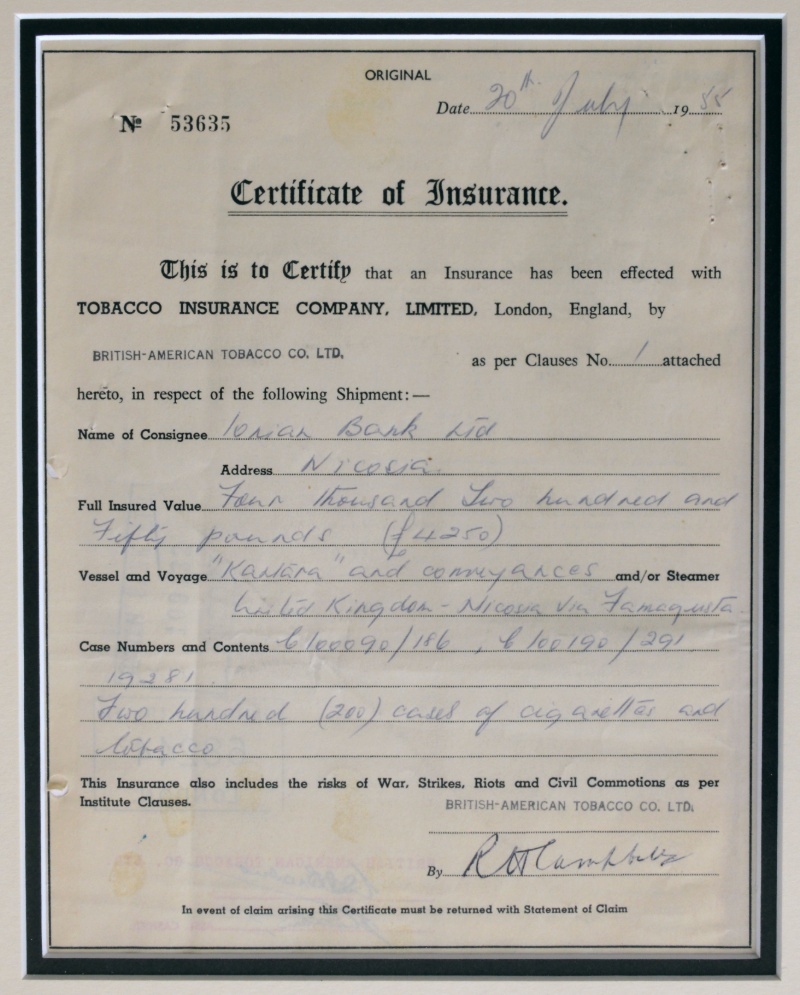 ORIGINAL
Date 20th July 1955
No 53635
Certificate of Insurance.
This is to Certify that an Insurance has been effected with
TOBACCO INSURANCE COMPANY, LIMITED, London, England, by
BRITISH-AMERICAN TOBACCO CO. LTD. as per Clauses No. 1 attached
hereto, in respect of the following Shipment:—
Name of Consignee Ionian Bank Ltd
Address Nicosia
Full Insured Value Four thousand Two hundred and
Fifty pounds (£4250)
Vessel and Voyage "Kantara" and conveyances and/or Steamer
United Kingdom - Nicosia via Famagusta
Case Numbers and Contents 6100090/186, 6100190/291
19281.
Two hundred (200) cases of cigarettes and
tobacco
This Insurance also includes the risks of War, Strikes, Riots and Civil Commotions as per
Institute Clauses.
BRITISH-AMERICAN TOBACCO CO. LTD.
By
In event of claim arising this Certificate must be returned with Statement of Claim